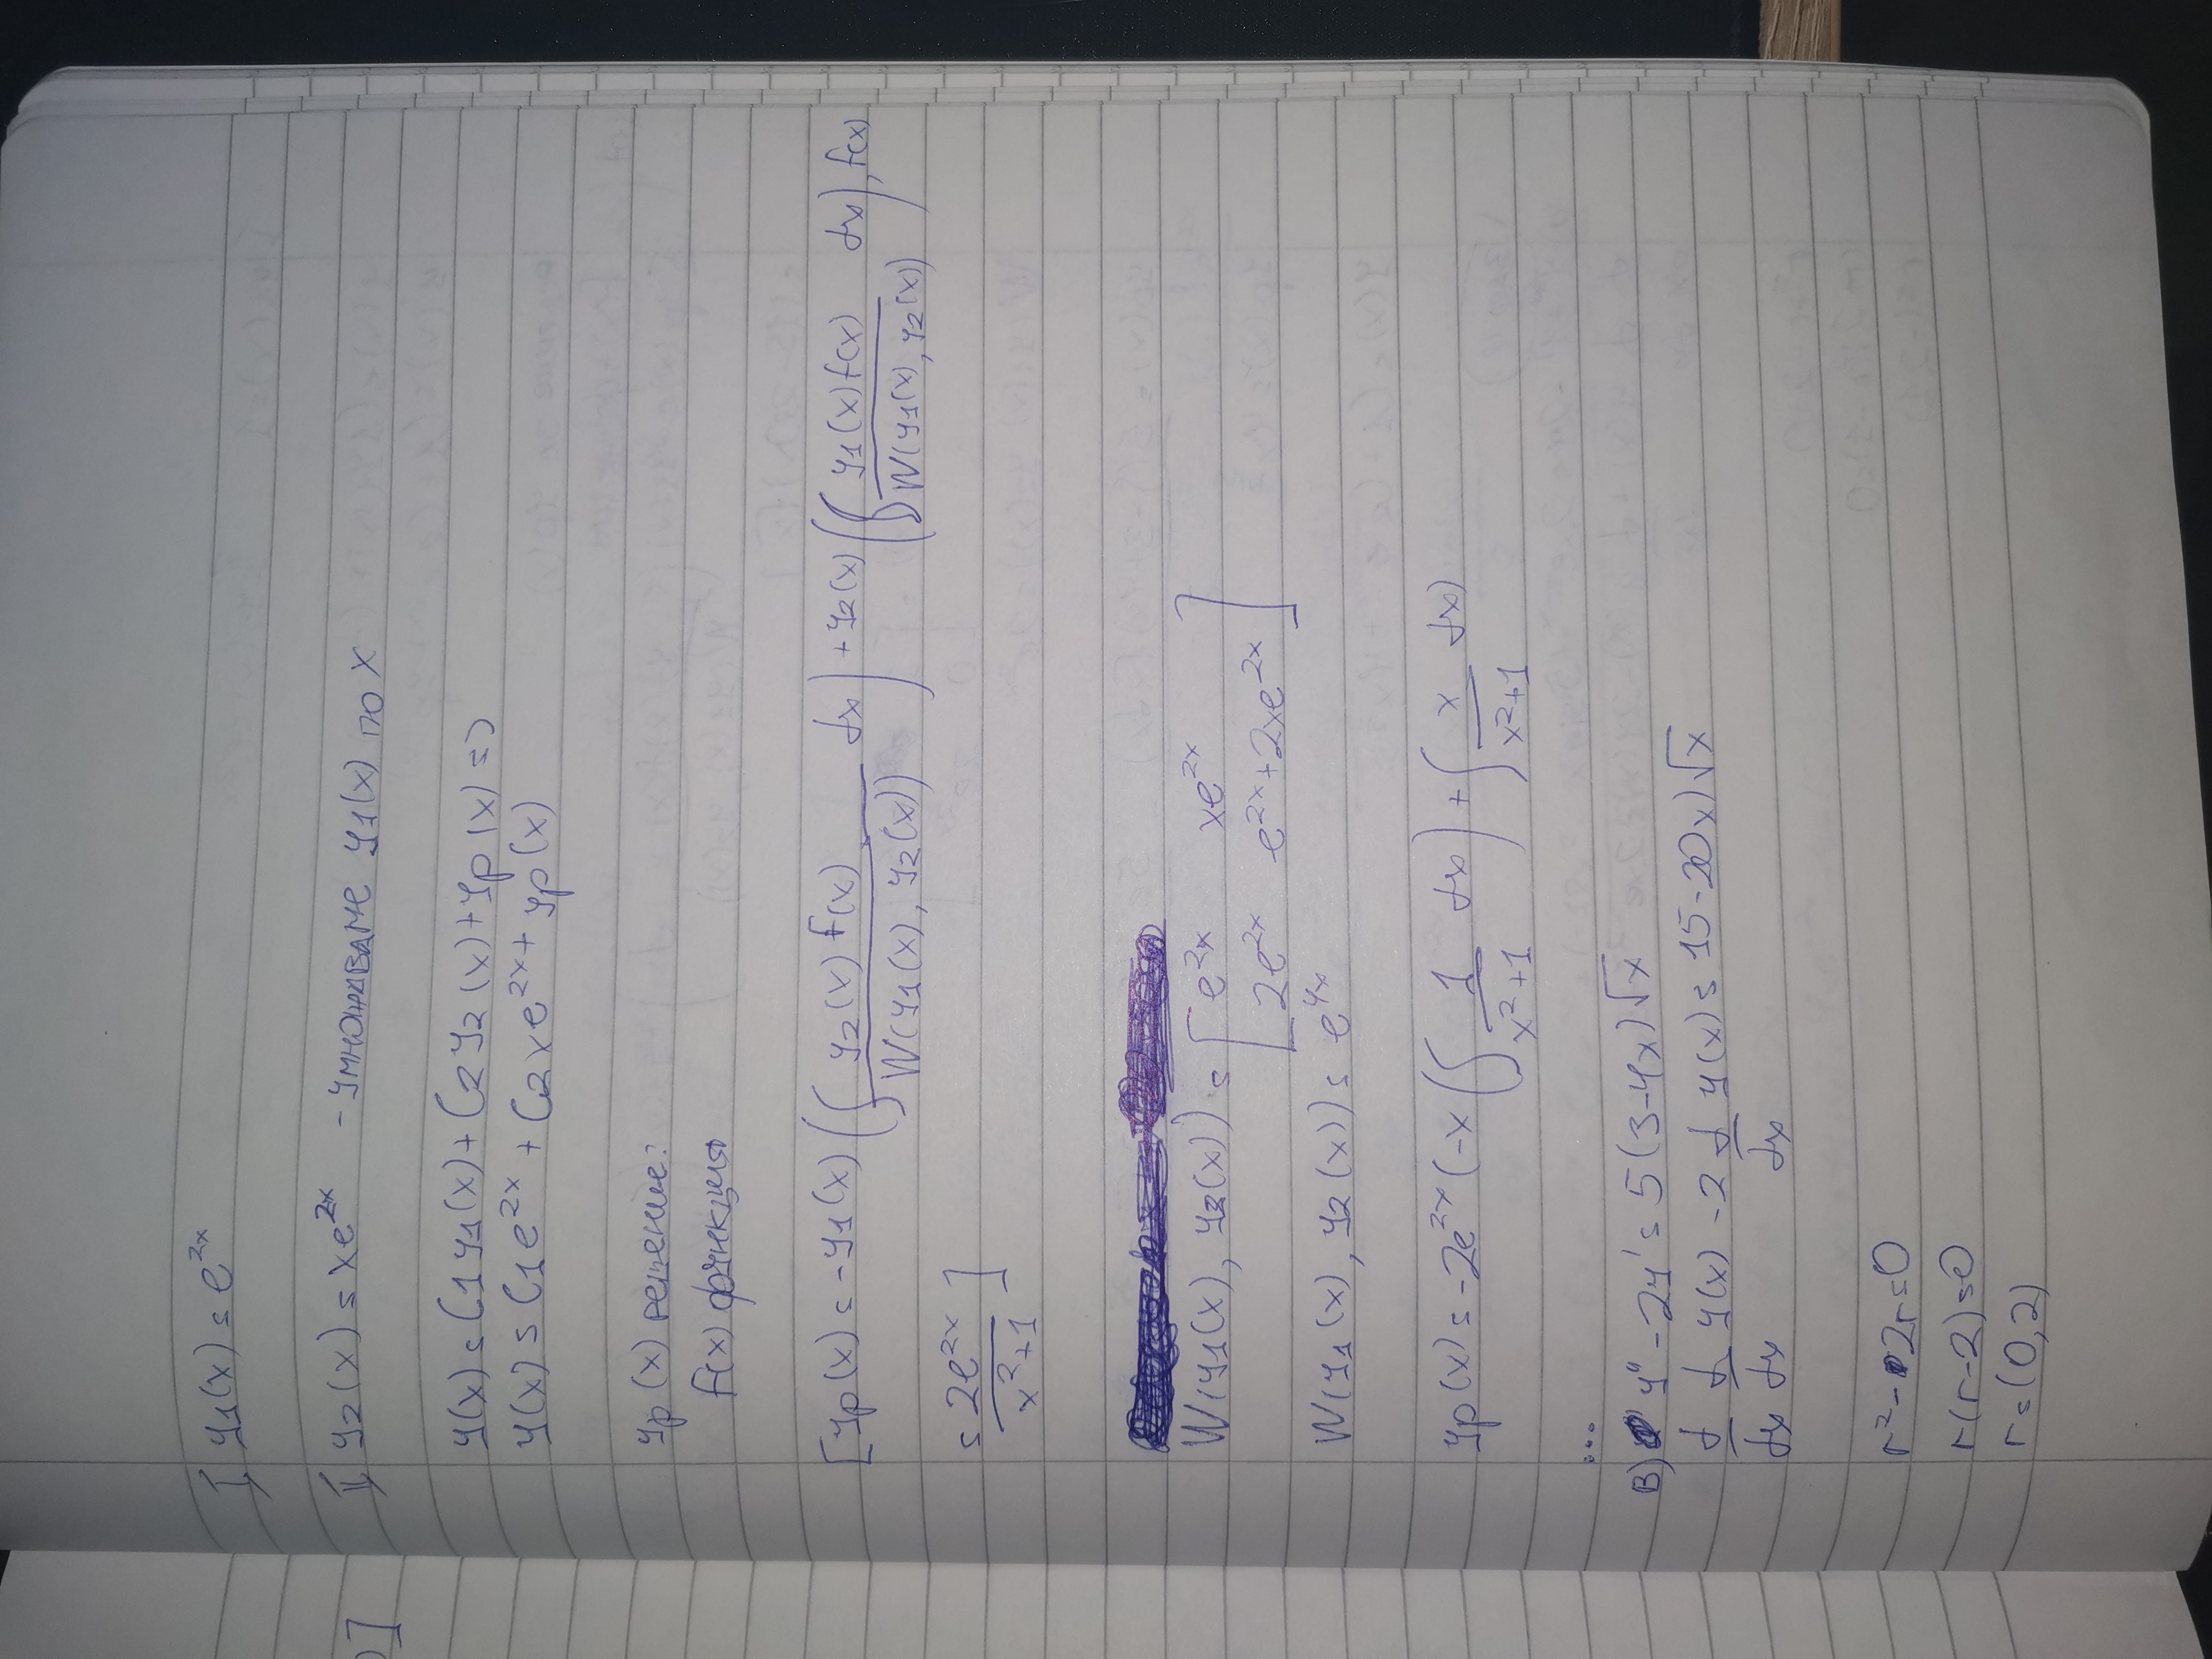 I, y1(x) = e^2x
II, y2(x) = xe^2x - умножаваме y1(x) по x
y(x) = C1y1(x) + C2y2(x) + yp(x) =>
y(x) = C1e^2x + C2xe^2x + yp(x)
yp(x) решение:
f(x) функция
[yp(x) = -y1(x) (∫ y2(x) f(x) / W(y1(x), y2(x)) dx) + y2(x) (∫ y1(x) f(x) / W(y1(x), y2(x)) dx), f(x)
= 2e^2x / x^2+1 ]
W(y1(x), y2(x)) = [ e^2x xe^2x
2e^2x e^2x+2xe^2x ]
W(y1(x), y2(x)) = e^4x
yp(x) = -2e^2x (-x (∫ 1 / x^2+1 dx) + ∫ x / x^2+1 dx)
...
в) y'' - 2y' = 5(3-4x)√x
d/dx d/dx y(x) - 2 d/dx y(x) = 15-20x)√x
r^2 - 2r = 0
r(r-2) = 0
r = (0,2)